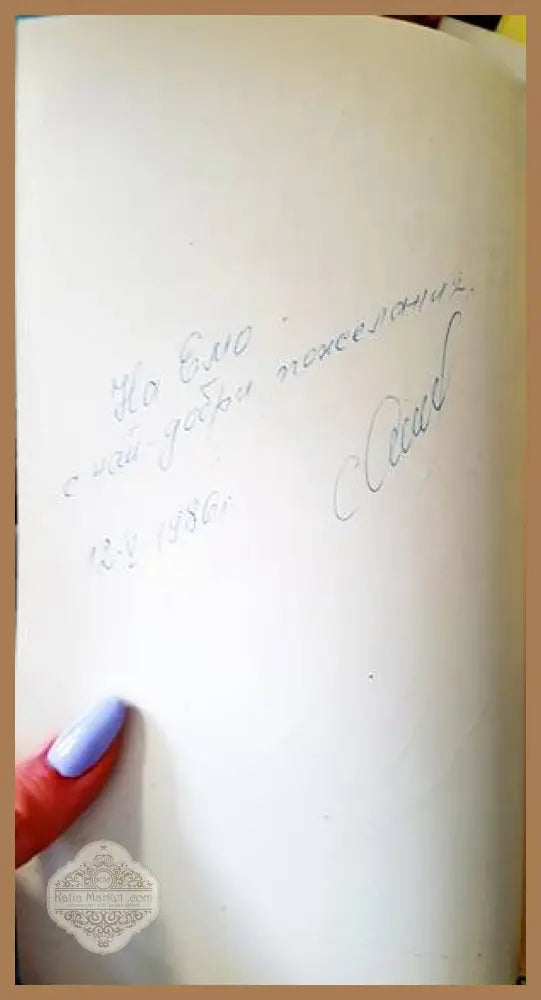 На Емо
с най-добри пожелания.
12.V.1986г
KM
Katia Market .com